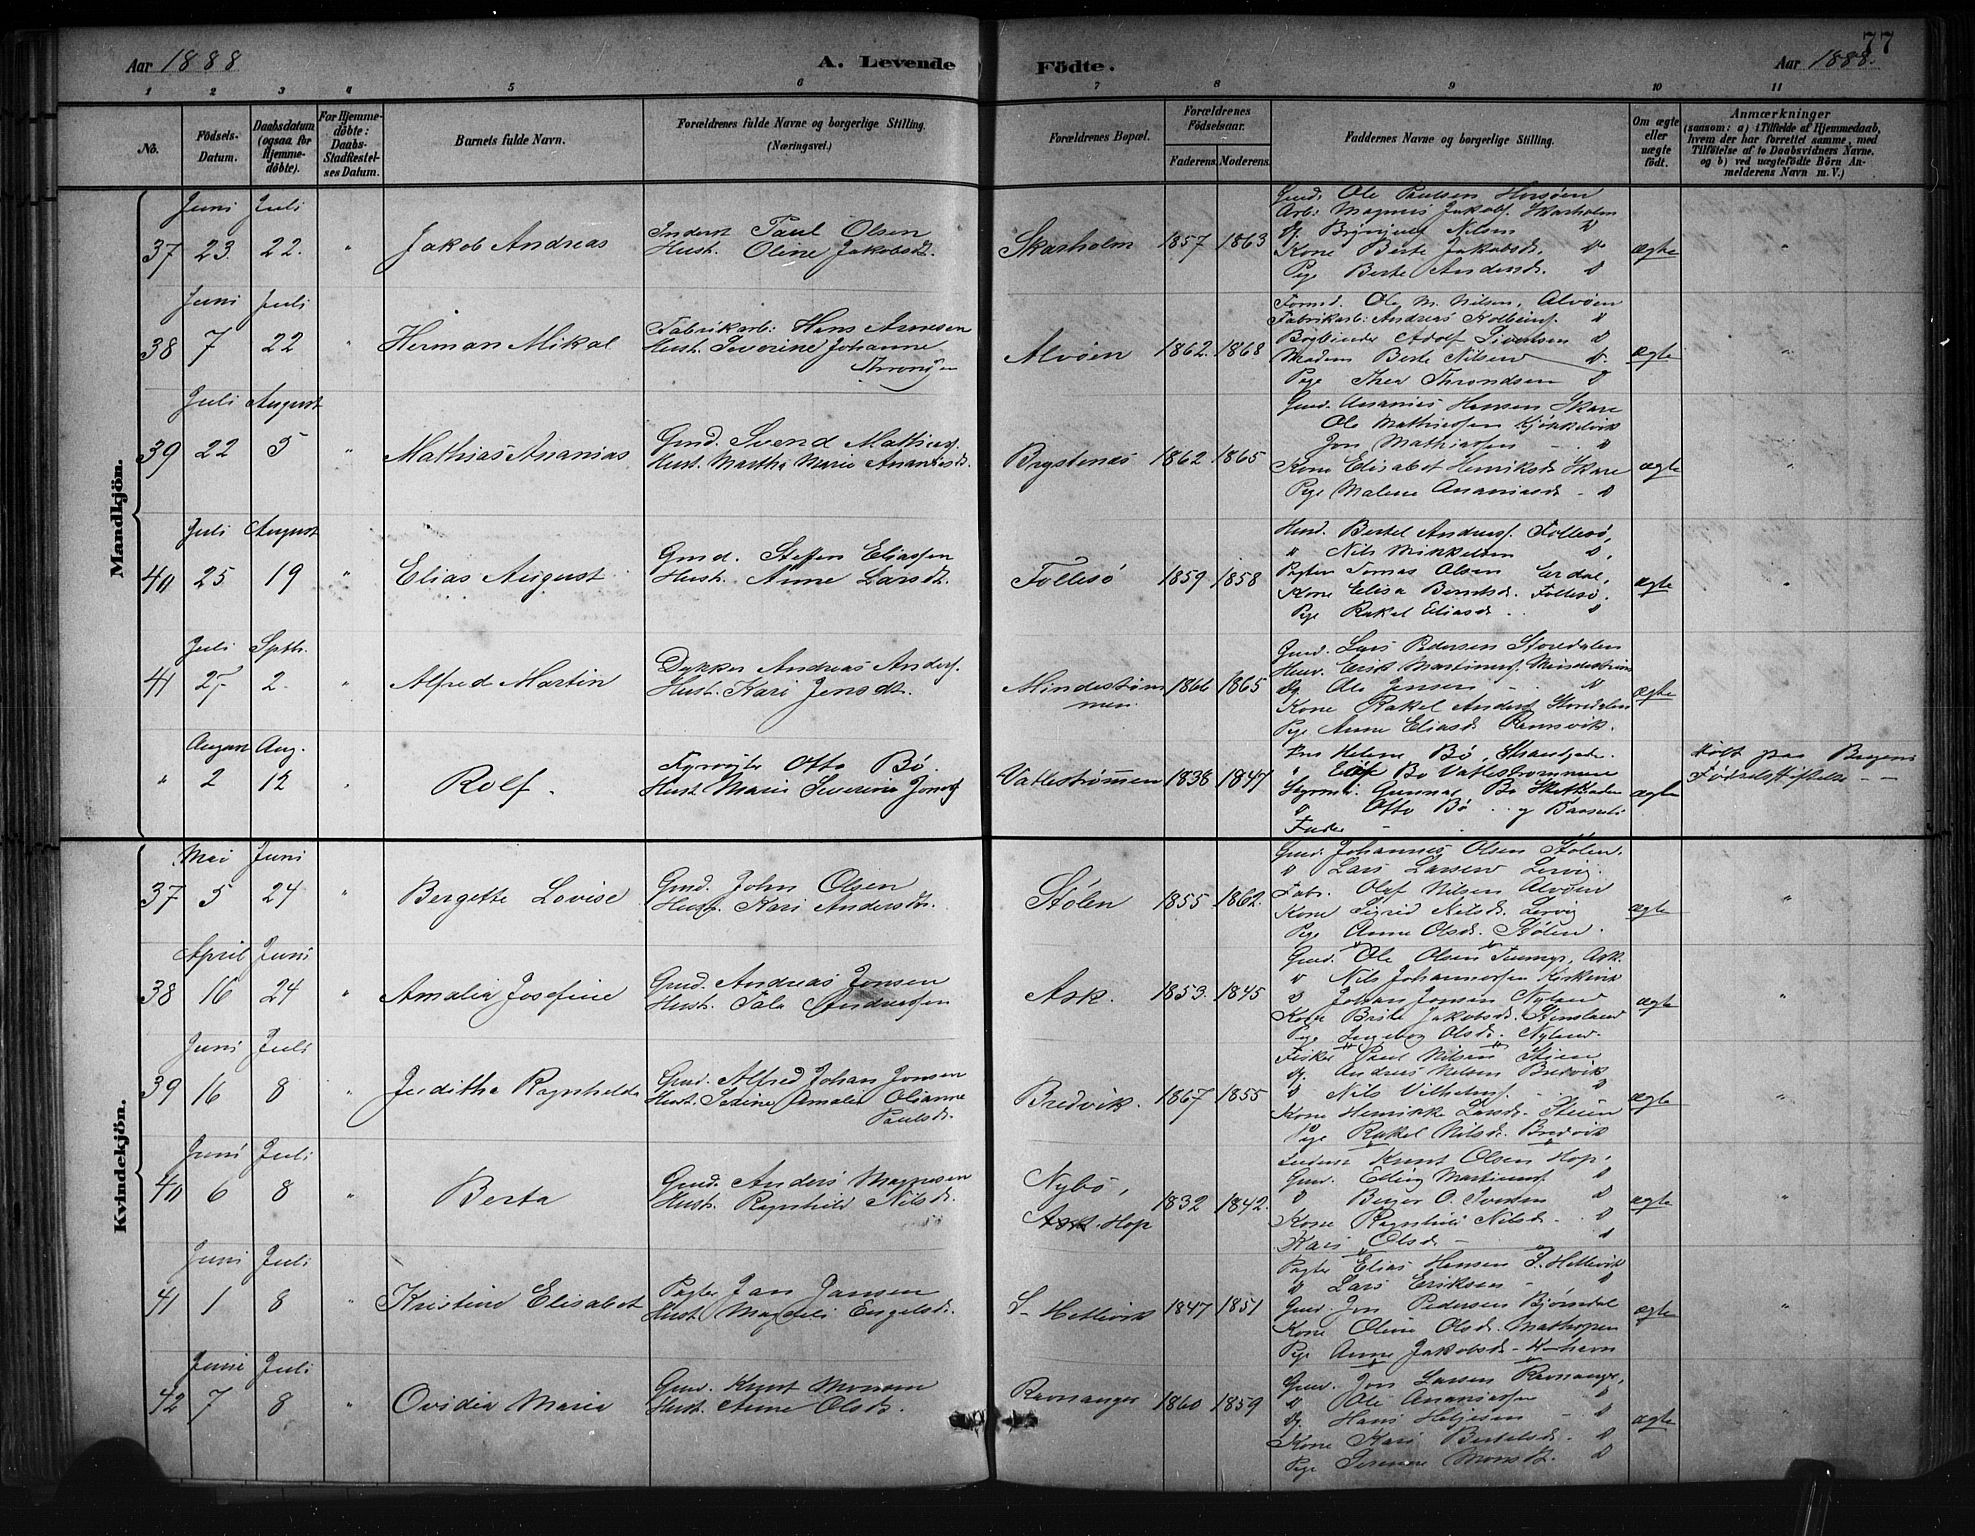 77
Aar 1888 A. Levende Födte. Aar 1888.
1 2 3 4 5 6 7 8 9 10 11
No.
Födsels-Datum.
Daabsdatum (ogsaa for Hjemme-döbte).
For Hjemme-döbte: Daabs-Stadfæstel-ses Datum.
Barnets fulde Navn.
Forældrenes fulde Navne og borgerlige Stilling. (Næringsvei.)
Forældrenes Bopæl.
Forældrenes Födselsaar.
Faderens. Moderens.
Faddernes Navne og borgerlige Stilling.
Om ægte eller uægte födt.
Anmærkninger
(saasom: a) i Tilfælde af Hjemmedaab,
hvem der har forrettet samme, med
Tilföielse af to Daabsvidners Navne.
og b) ved uægtefödte Börn An-
melderens Navn m. V.)
Mandkjön.
37 Juni 23. Juli 22. " Jakob Andreas
Inderst Paul Olsen
Hust. Oline Jakobsd.
Skarholm 1857 1863
Gmd. Ole Paulsen
Arb: Magnus Jakobs. Skarholm
Nilsen "
Kone Berte Jakobsd. "
Pige Berte Andersd. "
ægte "
38 Juni 7 Juli 22 " Herman Mikal
Fabrikarb: Hans Arnesen
Hust. Severine Johanne
Alvøen 1862. 1868
Formd. Ole M. Nilsen, Alvøen
Fabrikarb: Andreas "
Bogbinder Adolf Sivertsen "
Madam Berte Nilsen "
Pige Thea Throndsen "
ægte "
39 Juli 22 August 5 " Mathias Ananias
Gmd. Svend Mathias.
Hust. Martha Marie Ananiasd.
Brystenæs 1862 1865
Gmd. Ananias Hansen Skare
Ole Mathiassen Kjøkkelvik
Jon Mathiassen - "
Kone Elisabet Henriksd. Skare
Pige Malene Ananiasd. - "
ægte "
40 Juli 25 August 19 " Elias August
Gmd. Steffen Eliassen
Hust. Anne Larsd.
Follesø 1859 1858
Husd. Bertel Anders. Follesø,
" Nils Mikkelsen "
Pagter Tomas Olsen Erdal,
Kone Elisa Berntsd. Follesø.
Pige Rakel Eliasd. "
ægte "
41 Juli 25 Sptb. 2. " Alfred Martin
Dykker Andreas Anders.
Hust. Kari Jensdt.
Mindestrøm-
men. 1866 1865
Gmd. Lars Pedersen Storedalen
Erik Martinus. Mindestrøm
Ole Jensen - "
Kone Rakel Anders. Storedalen
Pige Anne Eliasd. Ramsvik.
ægte
" August 2 Aug. 12 " Rolf.
Fyrvogter Otto Bø.
Hust Marie Severine
Vatlestrømmen 1838 1847
Fru Helene Bø, Strandgade
" Bø Vatlestrømmene
Styrm: Gunnar Bø
" Otto Bø
Fader -
ægte
Født paa Bergens
Fødselsstiftelse - -
Kvindekjön.
37 Mai 5 Juni 24 " Bergette Lovise
Gmd. John Olsen
Hust. Kari Andersdt.
Stølen 1855 1862.
Gmd. Johannes Olsen Stølen.
" Lars Larsen Lervig.
Fabr. Olaf Nilsen Alvøen
Kone Sigrid Nilsd. Lervig
Pige Anne Olsd. Stølen.
ægte "
38 April 16 Juni 24 " Amalia Josefine
Gmd. Andreas Jonsen
Hust. Tala Andreassen
Ask. 1853. 1845
Gmd. Ole Olsen Ask.
" Nils Johannessen
" Johan Jonsen Nyland
Kone Brite Jakobsd. Stensland
Pige Ingeborg Olsd. Nyland.
ægte "
39 Juni 16 Juli 8 " Juditha Ragnhelda
Gmd. Alfred Johan Jonsen
Hust. Serine Amalia Olianne
Paulsd.
Bredvik. 1867 1855
Fisker Paul Nilsen Steien
Andreas Nilsen Bredvik
" Nils Vilhelms. "
Kone Henrikke Larsd. Steien
Pige Rakel Nilsd. Bredvik
ægte "
40 Juni 6 Juli 8 " Berta
Gmd. Anders Magnesen
Hust. Ragnhild Nilsd.
Nybø,
Ask. Hop 1832 1842.
Inderst Knut Olsen Hop.
Gmd. Elling Martinus. "
" O. Iversen "
Kone Ragnhild Nilsd. - "
Kari Olsd. - "
ægte "
41 Juni 1 Juli 8 " Kristine Elisabet
Pagter Jan Jansen
Hust. Magdeli Engelsd.
S. Hetlevik 1847 1851
Pagter Elias Hansen S. Hetlevik
" Lars Eriksen - "
Gmd. Jon Pedersen Bjørndal
Kone Oline Olsd. Mathopen
Pige Anne Jakobsd.
ægte "
42 Juni 7 Juli 8 " Ovidia Maria
Gmd. Knut Monsen
Hust. Anne Olsd.
Ravnanger 1860 1859
Gmd. Jon Larsen Ravnanger,
" Ole Ananiassen "
Hans Helgesen - "
Kone Kari Bertelsd. - "
Pige Serine Monsd. "
ægte "